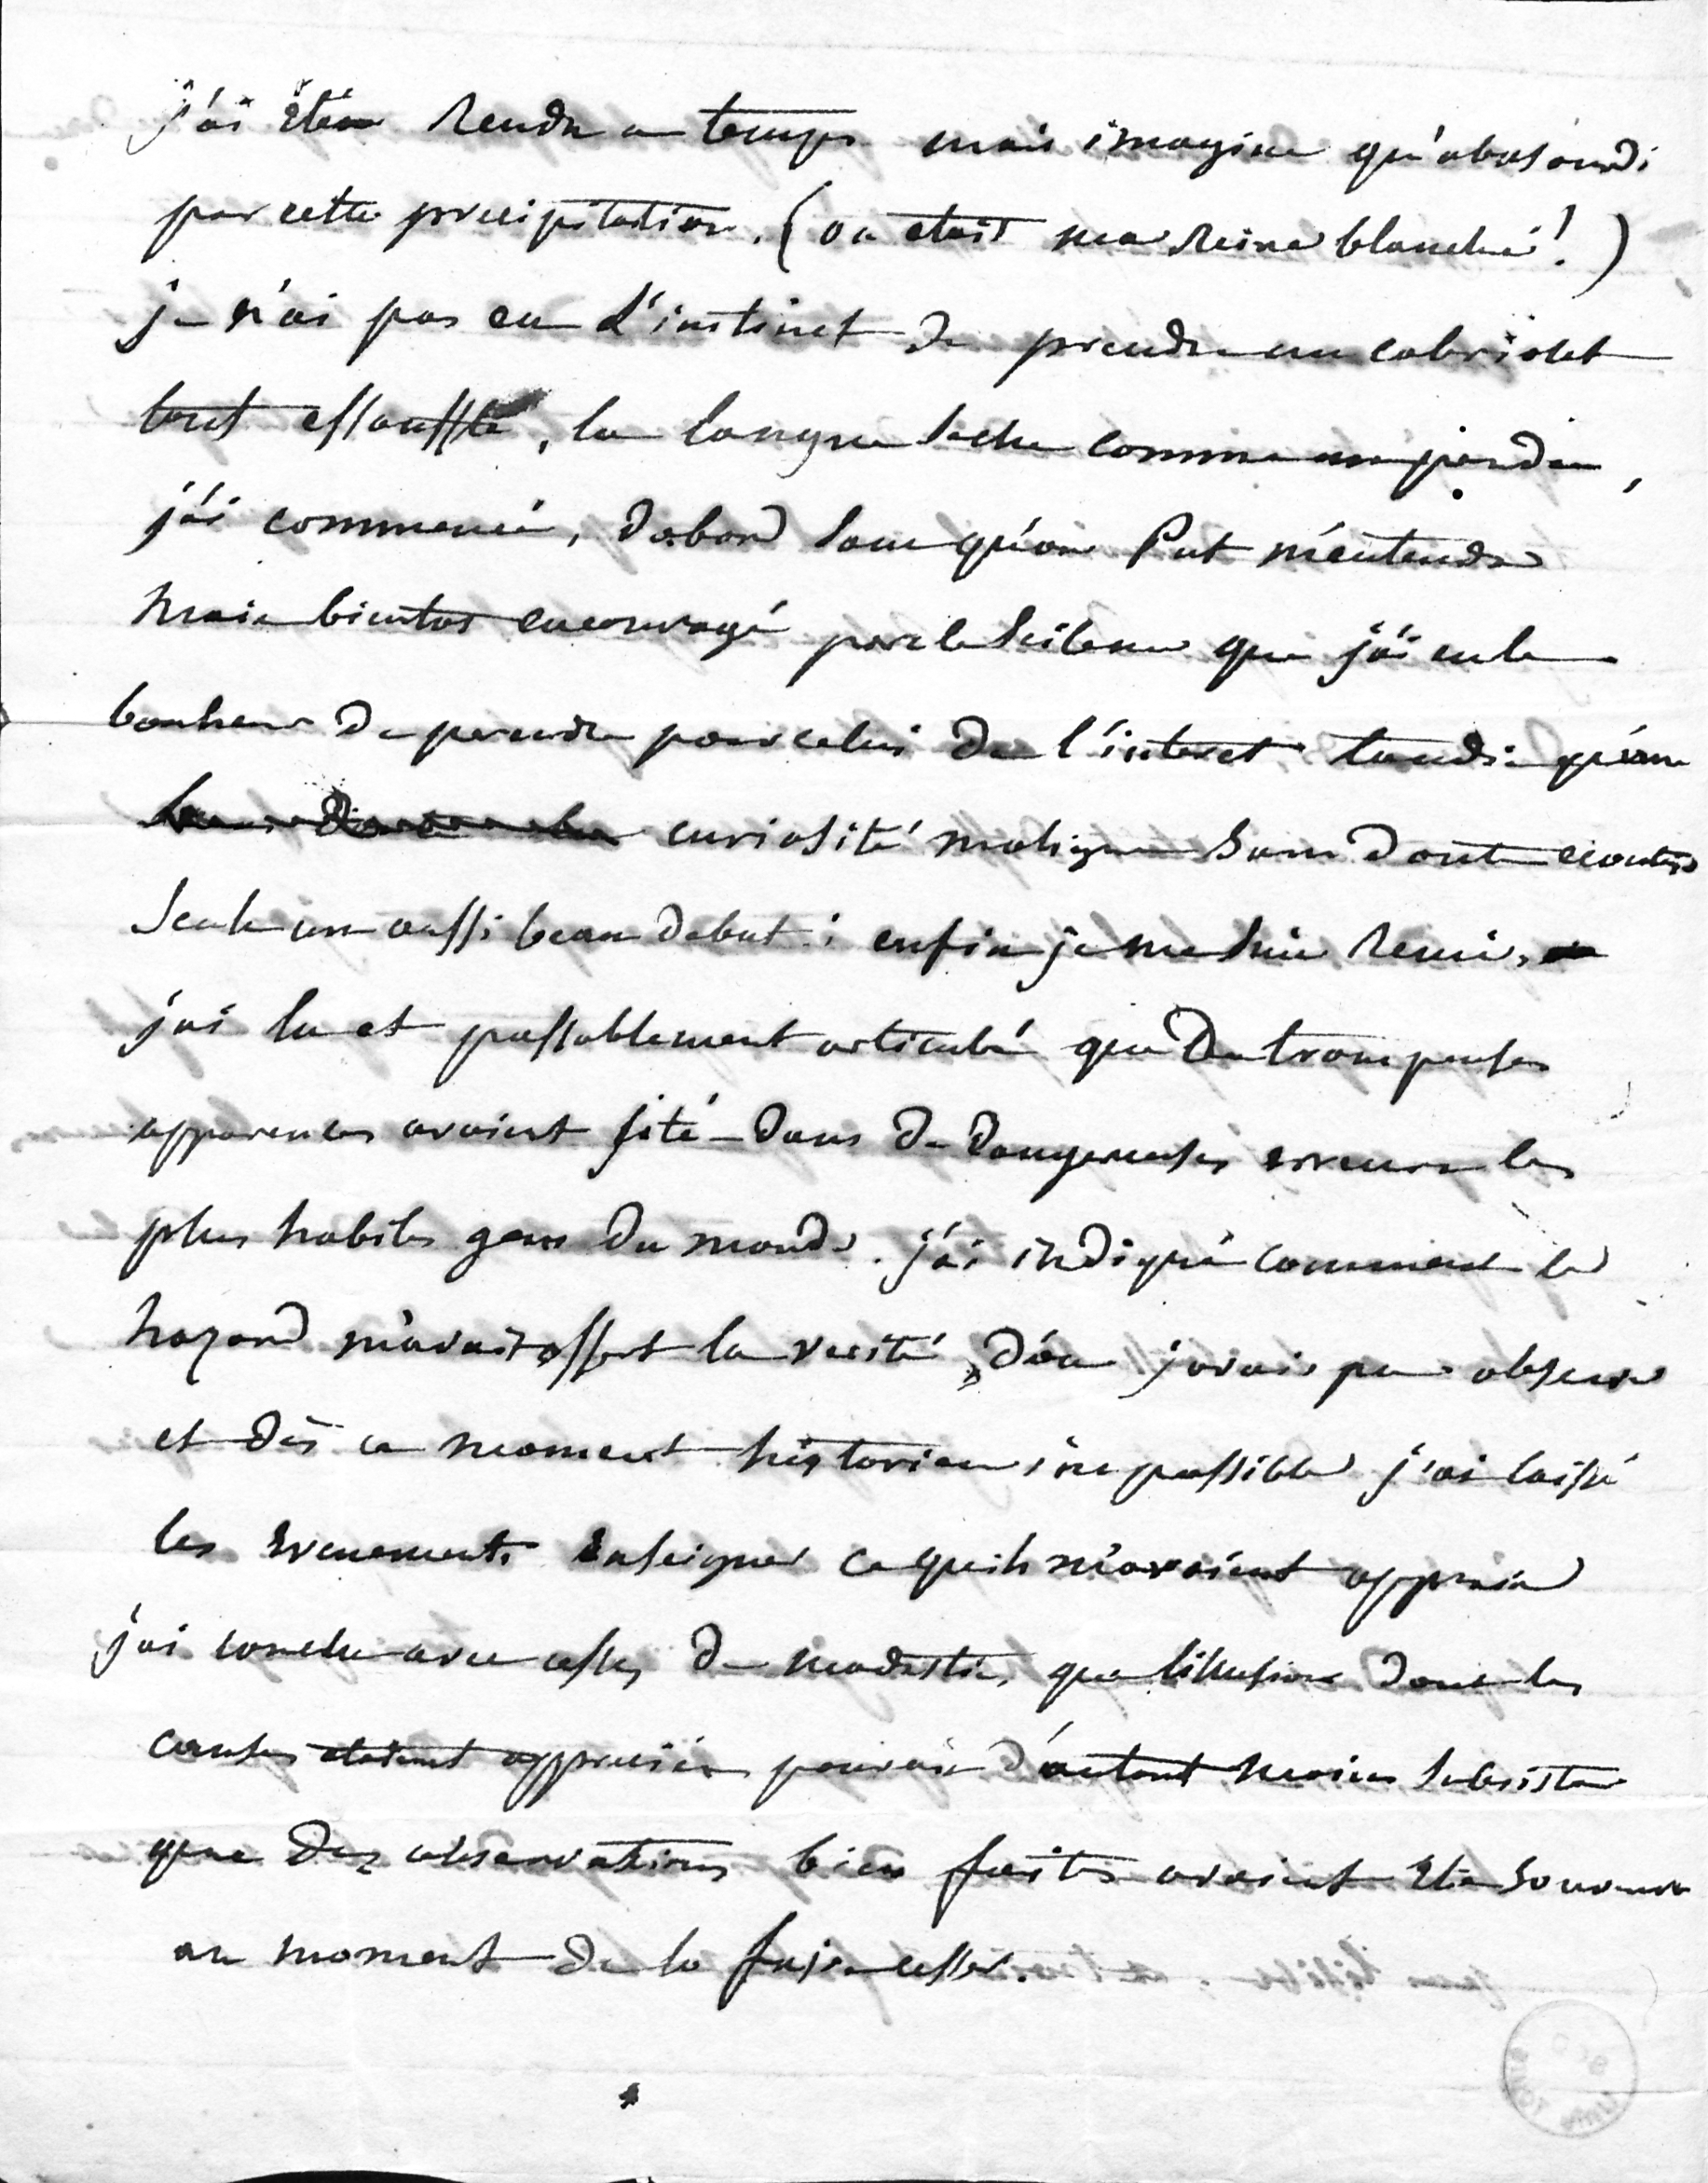 j'ai été rendu a temps mais imagine qu'abasourdi
par cette precipitation. (ou etait ma Reine blanche!)
je n'ai pas eu l'instinct de prendre un cabriolet
tout essoufflé, la langue seche comme un pendu,
j'ai commencé, dabord sans qu'on Put m'entendre
mais bientot encouragé par le silence que j'ai eu le
bonheur de prendre pour celui de l'interet tandis qu'une
curiosité maligne sans doute ecoutait
seule un aussi beau debut; enfin je me suis remis,
j'ai lu et passablement articulé que De trompeuses
apparences avaient jité dans de dangereuses erreurs les
plus habiles gens du monde. j'ai indiqué comment le
hazard m'avait offert la verité, d'ou j'avais pu observer
et dès ce moment historien impassible j'ai laissé
les evenements enseigner ce quils m'avaient appris
j'ai conclu avec assez de modestie, que lillusion dont les
causes etaient appreciées pouvait d'autant moins subsister
que des observations bien faites avaient été souvent
au moment de la faire cesser.